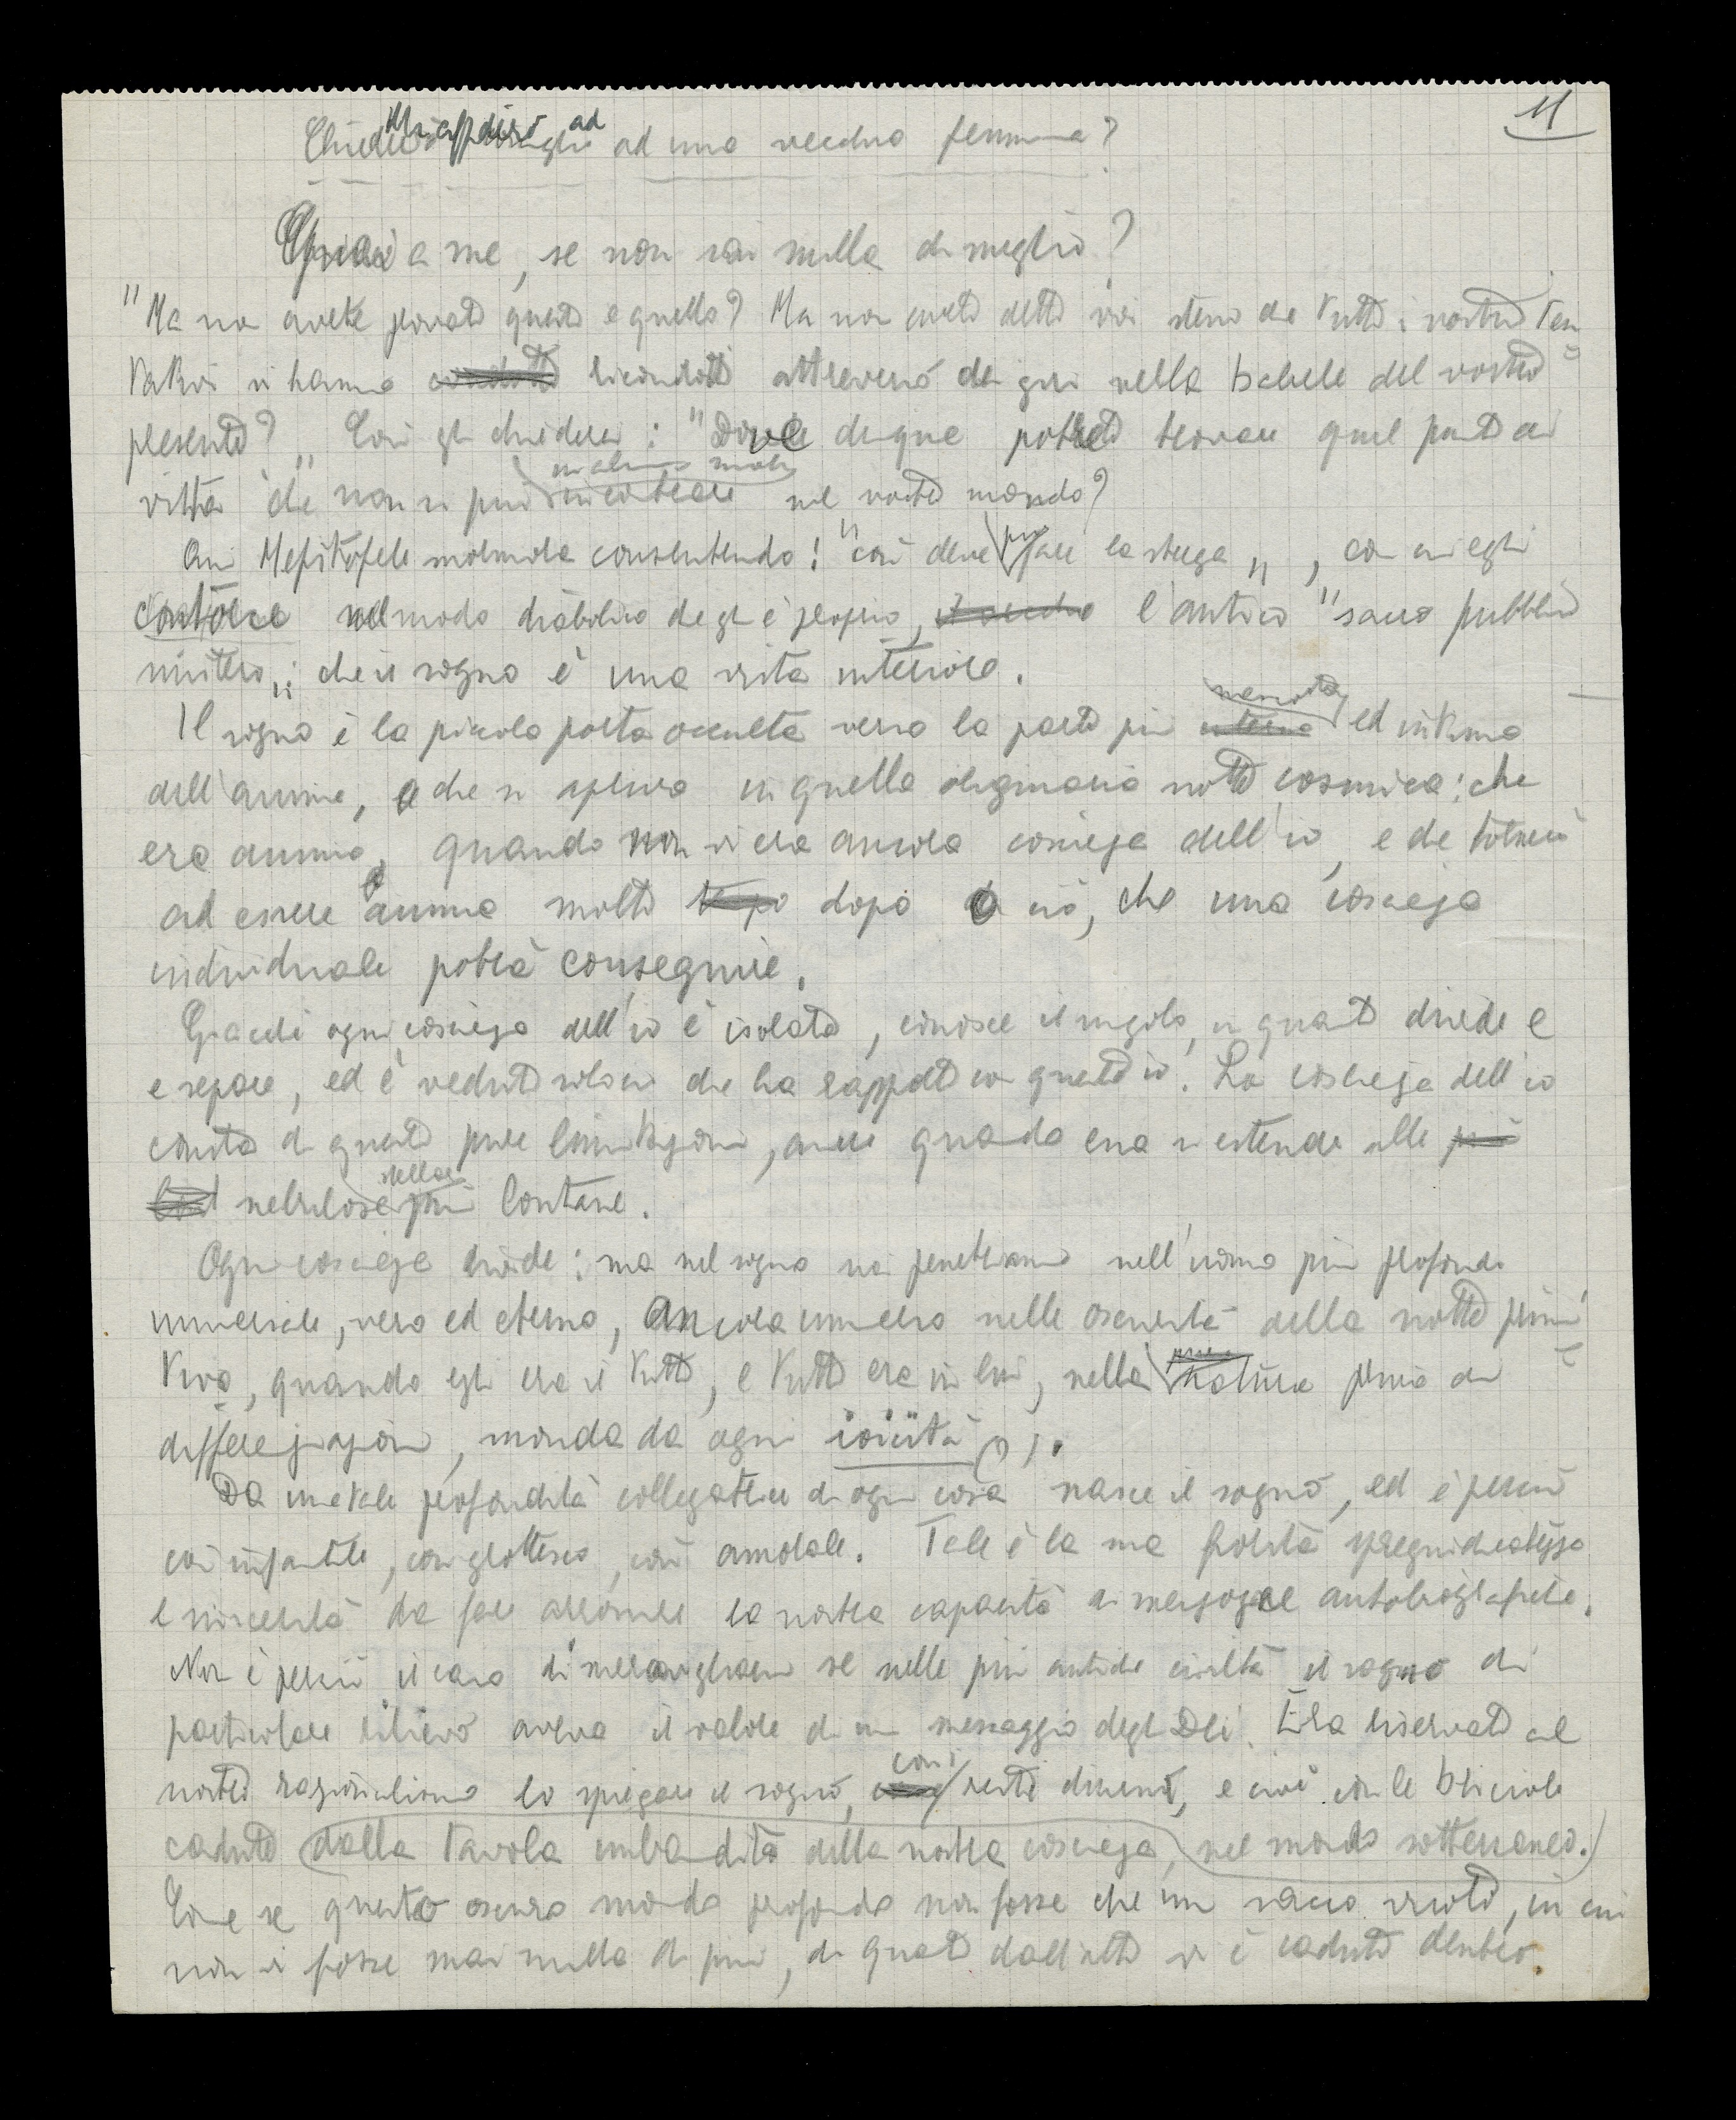 11
Mi affiderò ad
Chiederò consiglio ad una vecchia femmina?
Guai a me, se non sai nulla di meglio?
"Ma non avete provato questo e quello? Ma non avete detto voi stessi che tutti i vostri ten
tativi vi hanno condotti ricondotti attraverso dei giri nella babele del vostro
presente? „ Così gli chiederei: "Dove dunque potreste trovare quel punto di
vista che non si può incontrare nel vostro mondo?
Qui Mefistofele mormora consentendo: "così deve pur fare la strega „ , con cui egli
contorce nel modo diabolico che gli è proprio, l'antico "sacro pubblico
mistero „: che il sogno è una vista interiore.
Il sogno è la piccola porta occulta verso la parte più interna nascosta ed intima
dell'anima, e che si apriva in quella originaria notte cosmica: che
era anima, quando non vi era ancora coscienza dell'io, e che tornerà
ad essere anima molto tempo dopo a ciò, che una coscienza
individuale potrà conseguire.
Giacchè ogni coscienza dell'io è isolata, conosce il singolo, in quanto divide e
e separa, ed è veduto solo ciò che ha rapporto con questo io. La coscienza dell'io
consta di queste pure limitazioni, anche quando essa si estende alle più
nebulose stellari più lontane.
Ogni coscienza divide: ma nel sogno noi penetriamo nell'uomo più profondo
universale, vero ed eterno, ancora immerso nelle oscurità della notte primi
tiva, quando egli era il tutto, e tutto era in lui, nella pura natura priva di
differenziazioni, monda da ogni ioicità (?).
Da una tale profondità collegatrice di ogni cosa nasce il sogno, ed è perciò
così infantile, così grottesco, così amorale. Tale è la sua fiorita spregiudicatezza
e sincerità da fare arrossire la nostra capacità di menzogne autobiografiche.
Non è perciò il caso di meravigliarsi se nelle più antiche civiltà il sogno di
particolare rilievo aveva il valore di un messaggio degli Dei. Era riservato al
nostro razionalismo lo spiegare il sogno, così resti diurni, e cioè con le briciole
cadute (dalla tavola imbandita della nostra coscienza, nel mondo sotterraneo.)
Come se questo oscuro mondo profondo non fosse che un sacco vuoto, in cui
non vi fosse mai nulla di più, di quanto dall'alto vi è caduto dentro.